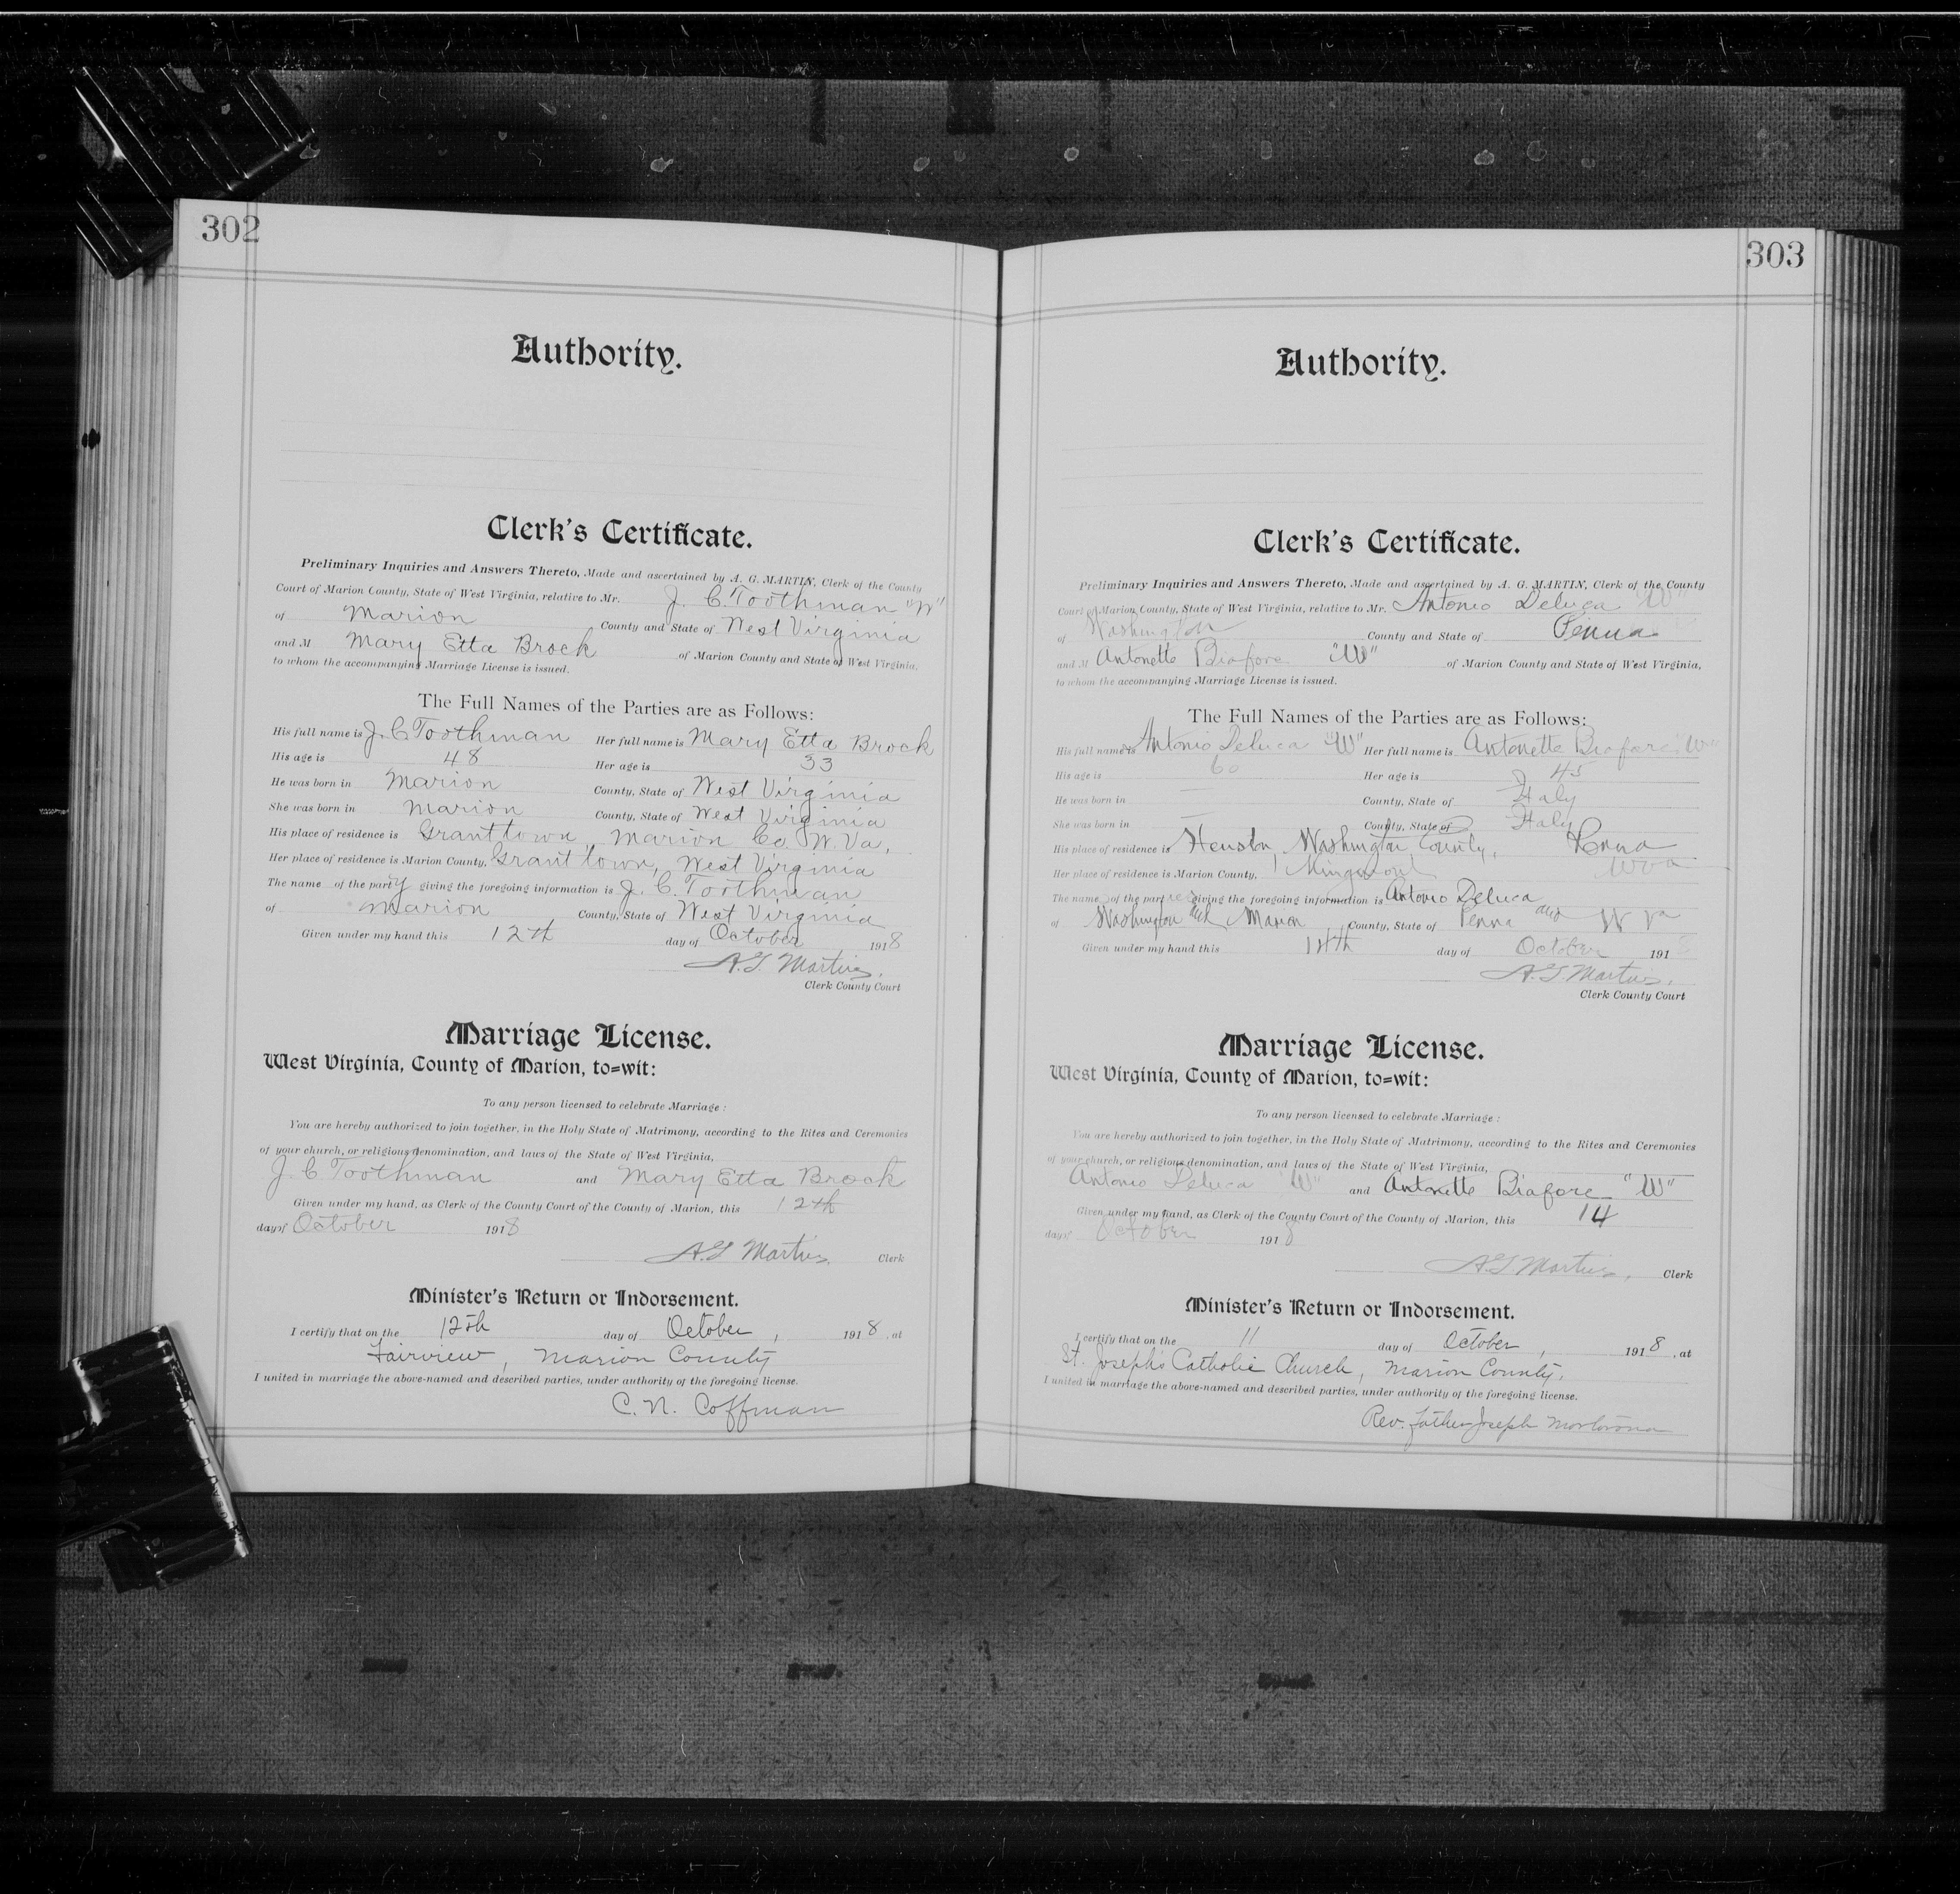 302
Authority.
Clerk's Certificate.
Preliminary Inquiries and Answers Thereto, Made and ascertained by A. G. MARTIN, Clerk of the County
Court of Marion County, State of West Virginia, relative to Mr. J. C. Toothman "W"
of Marion County and State of West Virginia
and M Mary Etta Brock of Marion County and State of West Virginia,
to whom the accompanying Marriage License is issued.
The Full Names of the Parties are as Follows:
His full name is J. C Toothman Her full name is Mary Etta Brock
His age is 48 Her age is 33
He was born in Marion County, State of West Virginia
She was born in Marion County, State of West Virginia
His place of residence is Granttown, Marion Co. W. Va,
Her place of residence is Marion County, Granttown, West Virginia
The name of the party giving the foregoing information is J. C. Toothman
of Marion County, State of West Virginia
Given under my hand this 12th day of October, 1918
A. G. Martin,
Clerk County Court
Marriage License.
West Virginia, County of Marion, to=wit:
To any person licensed to celebrate Marriage:
You are hereby authorized to join together, in the Holy State of Matrimony, according to the Rites and Ceremonies
of your church, or religious denomination, and laws of the State of West Virginia,
J. C Toothman and Mary Etta Brock
Given under my hand, as Clerk of the County Court of the County of Marion, this 12th
day of October 1918
A G Martin, Clerk
Minister's Return or Indorsement.
I certify that on the 12th day of October, 1918, at
Fairview, Marion County
I united in marriage the above-named and described parties, under authority of the foregoing license.
C. N. Coffman
303
Authority.
Clerk's Certificate.
Preliminary Inquiries and Answers Thereto, Made and ascertained by A. G. MARTIN, Clerk of the County
Court of Marion County, State of West Virginia, relative to Mr. Antonio Deluca "W"
of Washington County and State of Penna
and M Antonette Biafore "W" of Marion County and State of West Virginia,
to whom the accompanying Marriage License is issued.
The Full Names of the Parties are as Follows:
His full name is Antonio Deluca "W" Her full name is Antonette Biafore "W"
His age is 60 Her age is 45
He was born in — County, State of Italy
She was born in — County, State of Italy
His place of residence is Washington County, Penna
Her place of residence is Marion County, W Va
The name of the parties giving the foregoing information is Antonio Deluca
of Washington and Marion County, State of Penna and W Va
Given under my hand this 14th day of October 191
A. G. Martin,
Clerk County Court
Marriage License.
West Virginia, County of Marion, to=wit:
To any person licensed to celebrate Marriage:
You are hereby authorized to join together, in the Holy State of Matrimony, according to the Rites and Ceremonies
of your church, or religious denomination, and laws of the State of West Virginia,
Antonio Deluca "W" and Antonette Biafore "W"
Given under my hand, as Clerk of the County Court of the County of Marion, this 14
day of October 1918
A G Martin, Clerk
Minister's Return or Indorsement.
I certify that on the 11 day of October, 1918, at
St. Joseph's Catholic Church, Marion County,
I united in marriage the above-named and described parties, under authority of the foregoing license.
Rev. Father Joseph